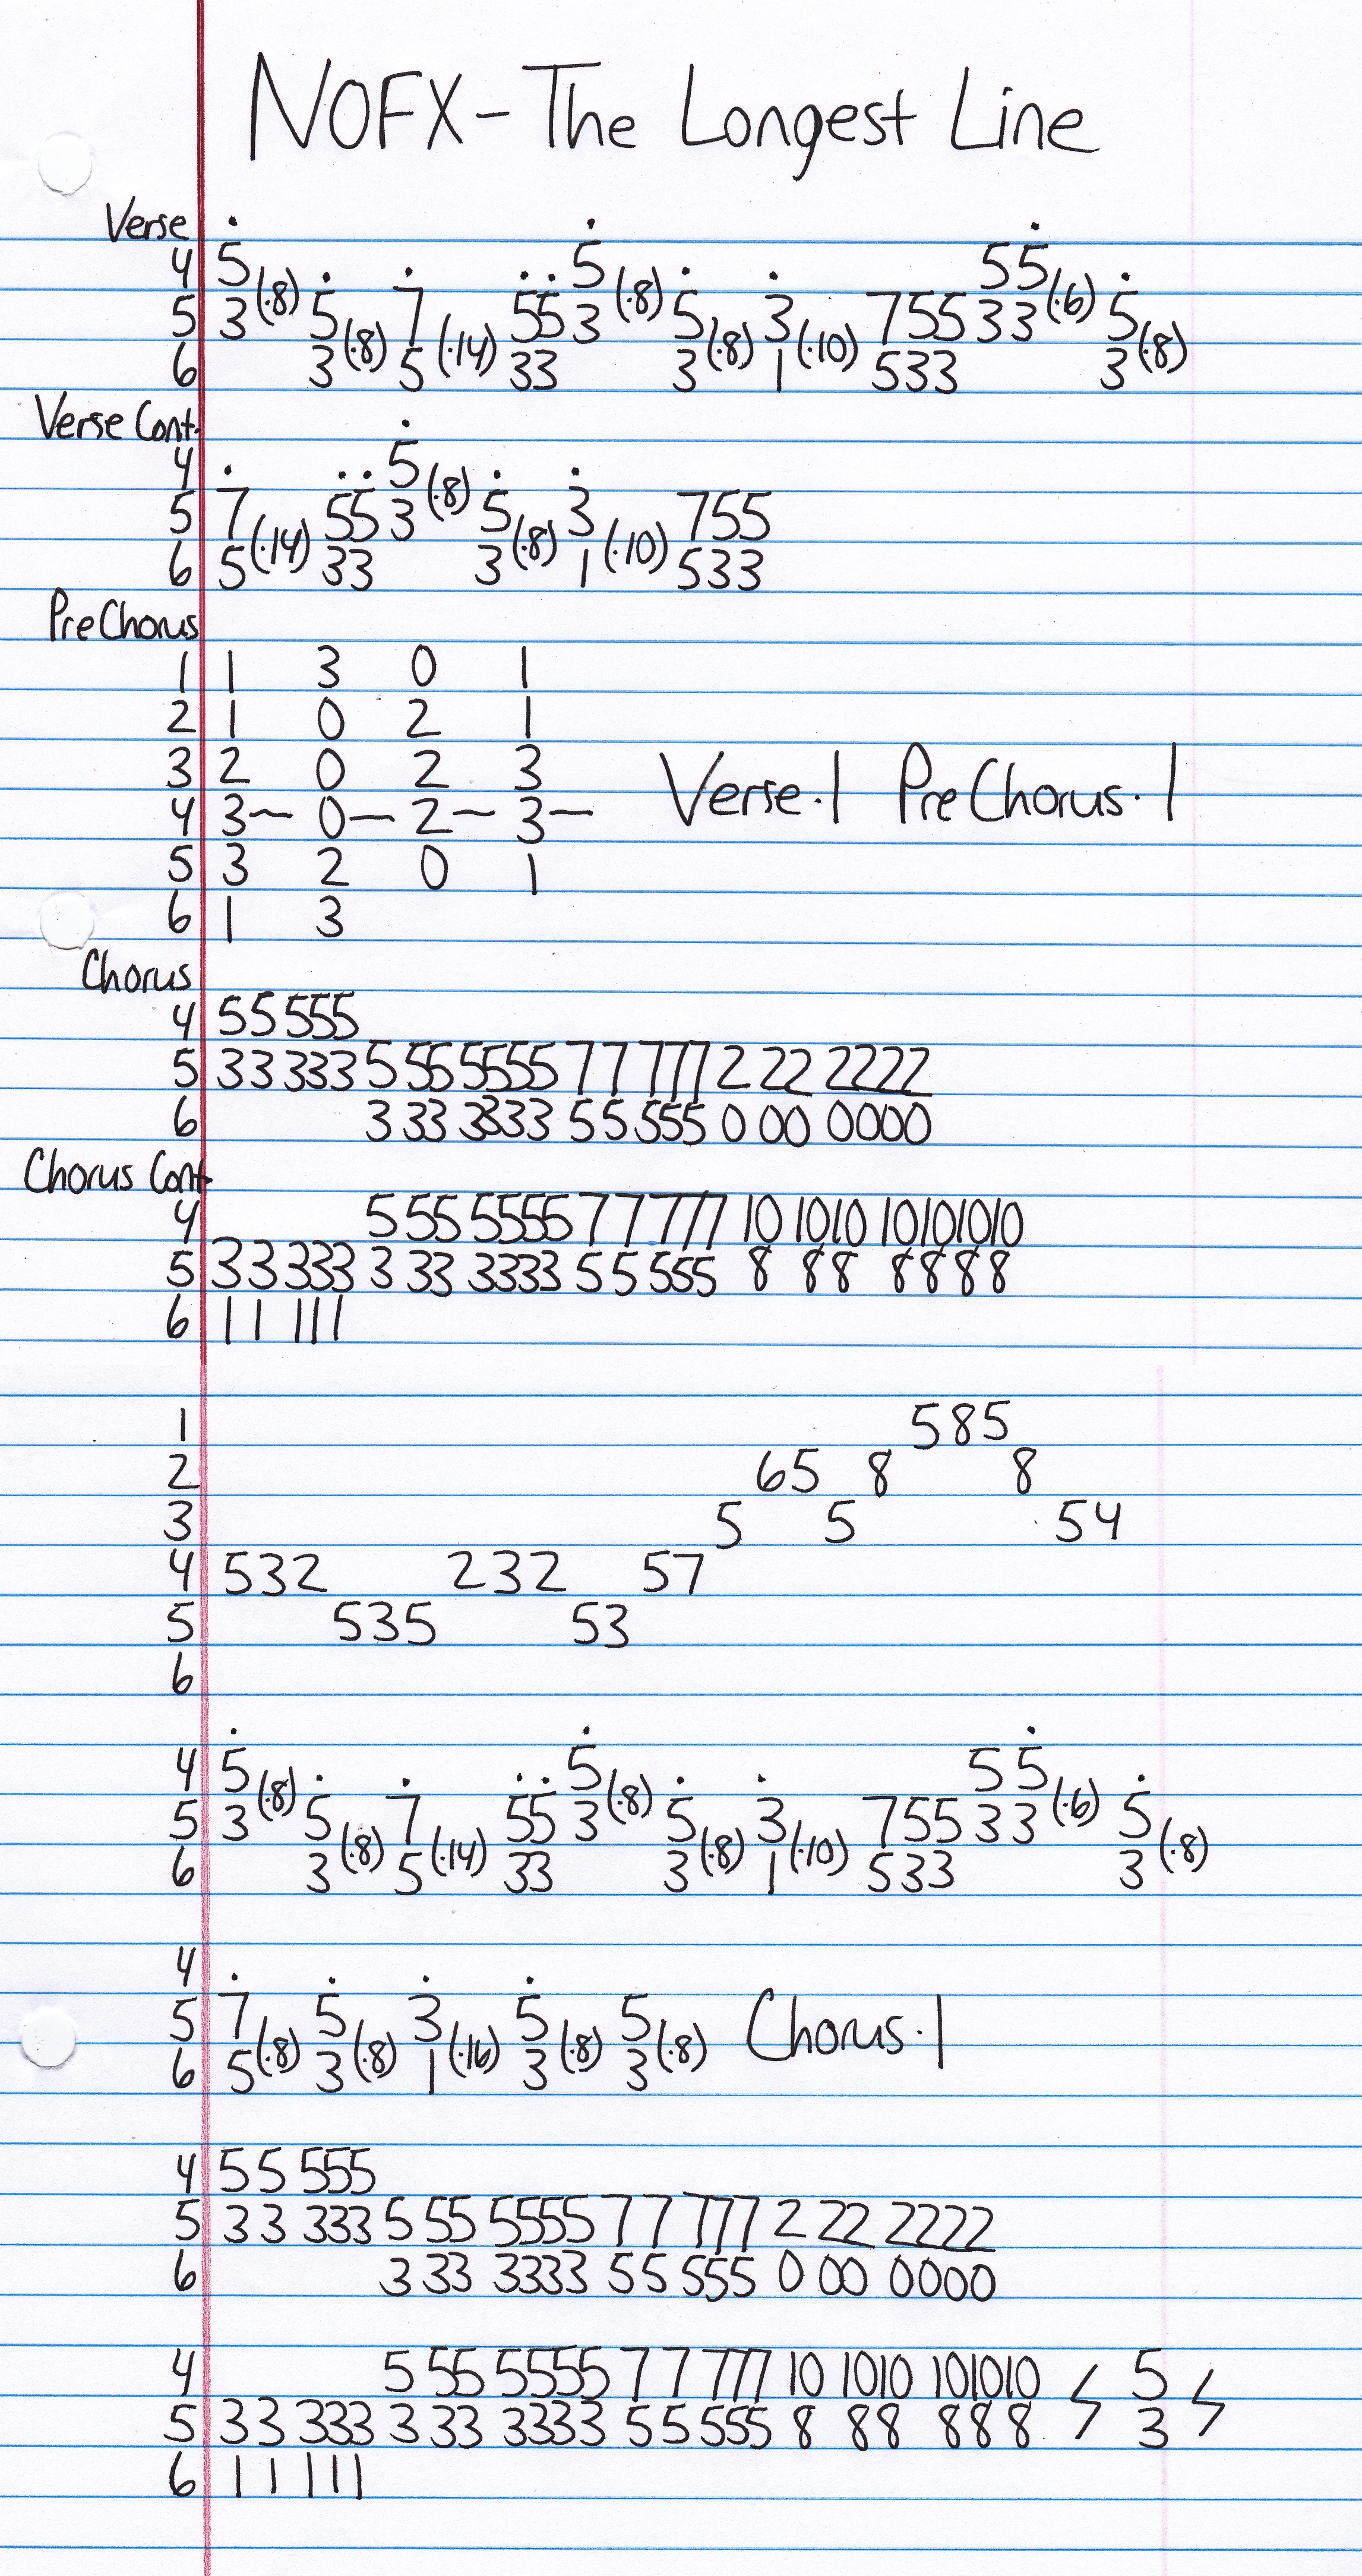 NOFX - The Longest Line
Verse
4 5 5 55
5 3(·8) 5 7 55 3(·8) 5 3 755 33(·6) 5
6 3(·8) 5(·14) 33 3(·8) 1(·10) 533 3(·8)
Verse Cont.
4 5
5 7 55 3(·8) 5 3 755
6 5(·14) 33 3(·8) 1(·10) 533
PreChorus
1 1 3 0 1
2 1 0 2 1
3 2 0 2 3 Verse·1 PreChorus·1
4 3~ 0— 2~ 3—
5 3 2 0 1
6 1 3
Chorus
4 55 555
5 33 333 5 55 5555 77 777 2 22 2222
6 3 33 3333 55 555 0 00 0000
Chorus Cont.
4 5 55 5555 77 777 10 1010 10101010
5 33 333 3 33 3333 55 555 8 88 8888
6 11 111
1 585
2 65 8 8
3 5 5 54
4 532 232 57
5 535 53
6
4 5 5 55
5 3(·8) 5 7 55 3(·8) 5 3 755 33(·6) 5
6 3(·8) 5(·14) 33 3(·8) 1(·10) 533 3(·8)
4
5 7 5 3 5 5 Chorus·1
6 5(·8) 3(·8) 1(·16) 3(·8) 3(·8)
4 55 555
5 33 333 5 55 5555 77 777 2 22 2222
6 3 33 3333 55 555 0 00 0000
4 5 55 5555 77 777 10 1010 101010 5
5 33 333 3 33 3333 55 555 8 88 888 3
6 11 111